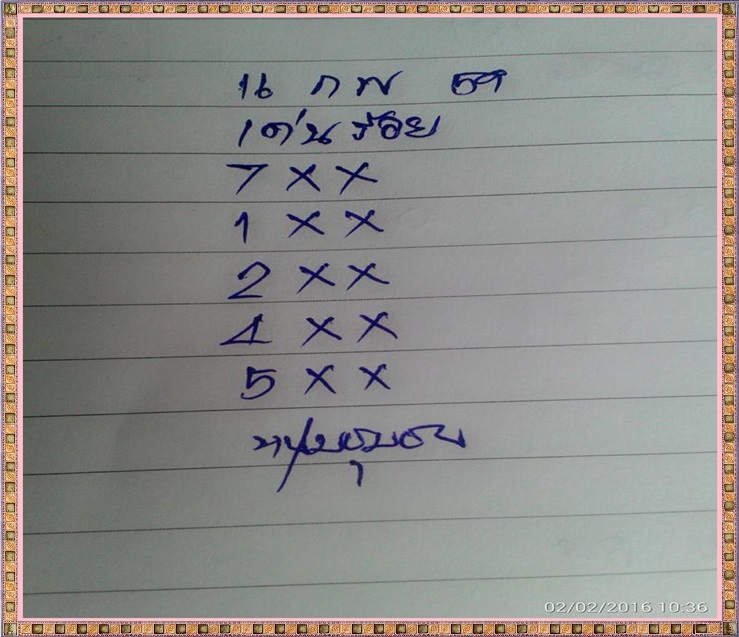 16 ก พ 59
เด่นร้อย
7 x x
1 x x
2 x x
4 x x
5 x x
02/02/2016 10:36